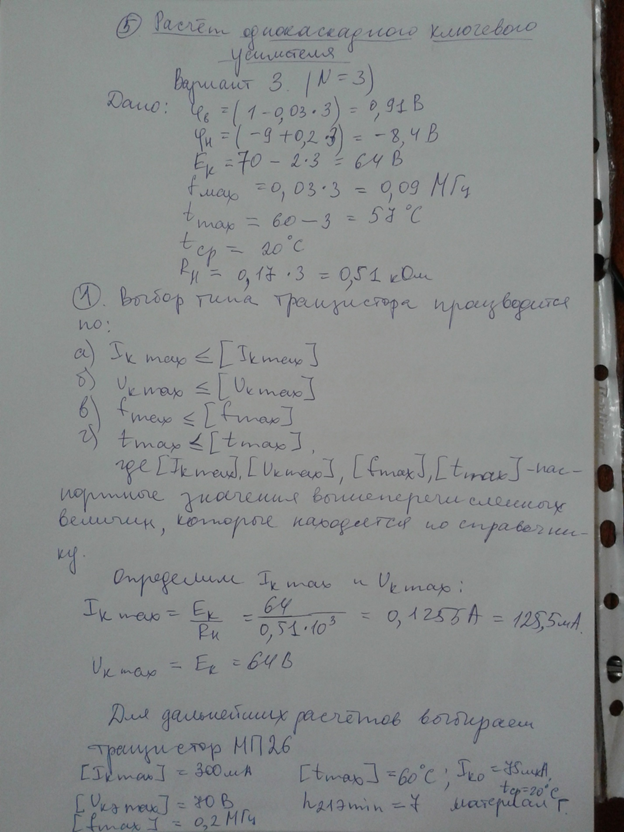 ⑤ Расчёт однокаскадного ключевого
усилителя
Вариант 3. (N=3)
Дано: φв = (1-0,03·3) = 0,91В
φн = (-9+0,2·3) = -8,4 В
Eк = 70 - 2·3 = 64 В
fмах = 0,03·3 = 0,09 МГц
tmax = 60-3 = 57°С
tср = 20°С
Rн = 0,17·3 = 0,51 кОм
① Выбор типа транзистора производится
по:
а) Iк max ≤ [Iк max]
б) Uк max ≤ [Uк max]
в) fmax ≤ [fmax]
г) tmax ≤ [tmax],
где [Iк max], [Uк max], [fmax], [tmax] - пас-
портные значения вышеперечисленных
величин, которые находятся по справочни-
ку.
Определим Iк max и Uк max:
Iк max = Eк/Rн = 64/0,51·10³ = 0,1255А = 125,5мА.
Uк max = Eк = 64В
Для дальнейших расчётов выбираем
транзистор МП26
[Iк max] = 300мА [tmax] = 60°С; Iко = 75мкА, tср=20°С
[Uкэ max] = 70В h21э min = 7 материал Г.
[fmax] = 0,2 МГц